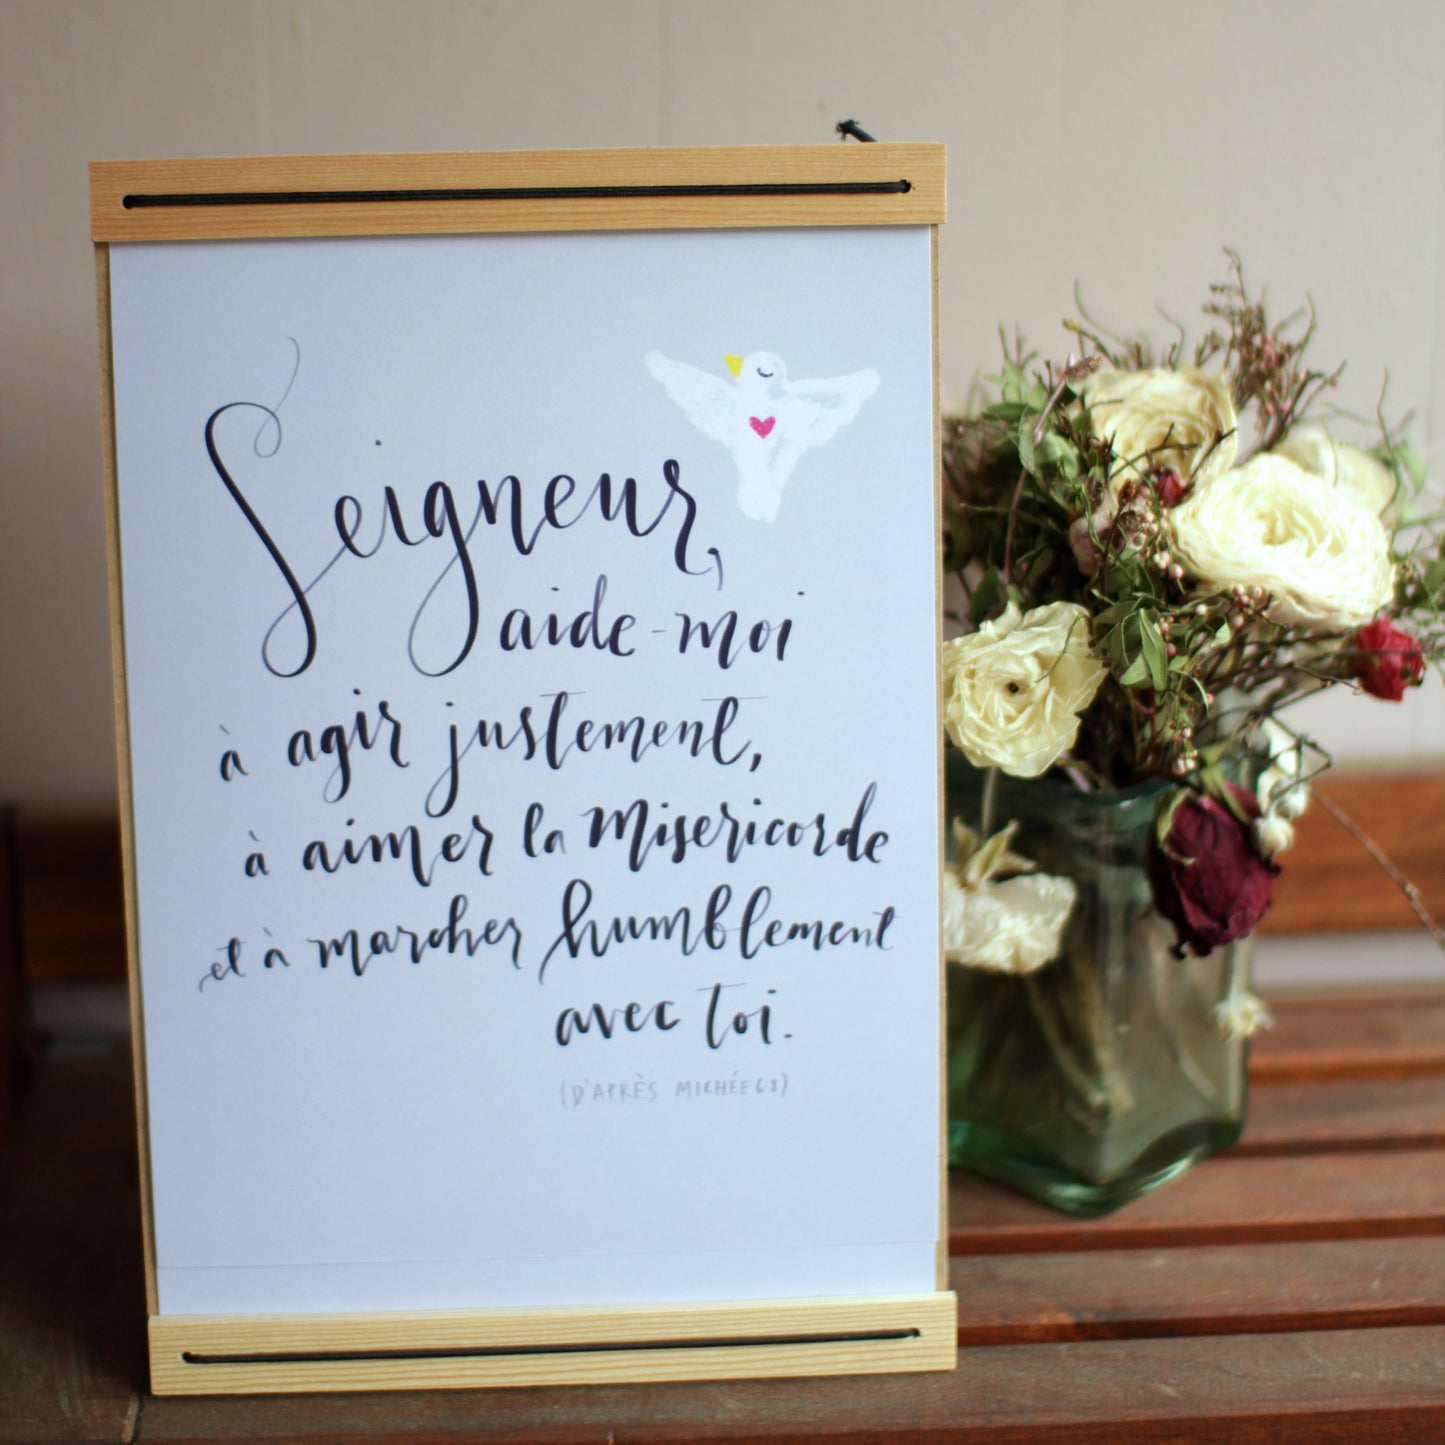 Seigneur,
aide-moi
à agir justement,
à aimer la Miséricorde
et à marcher humblement
avec toi.
(D'APRÈS MICHÉE 6 8)